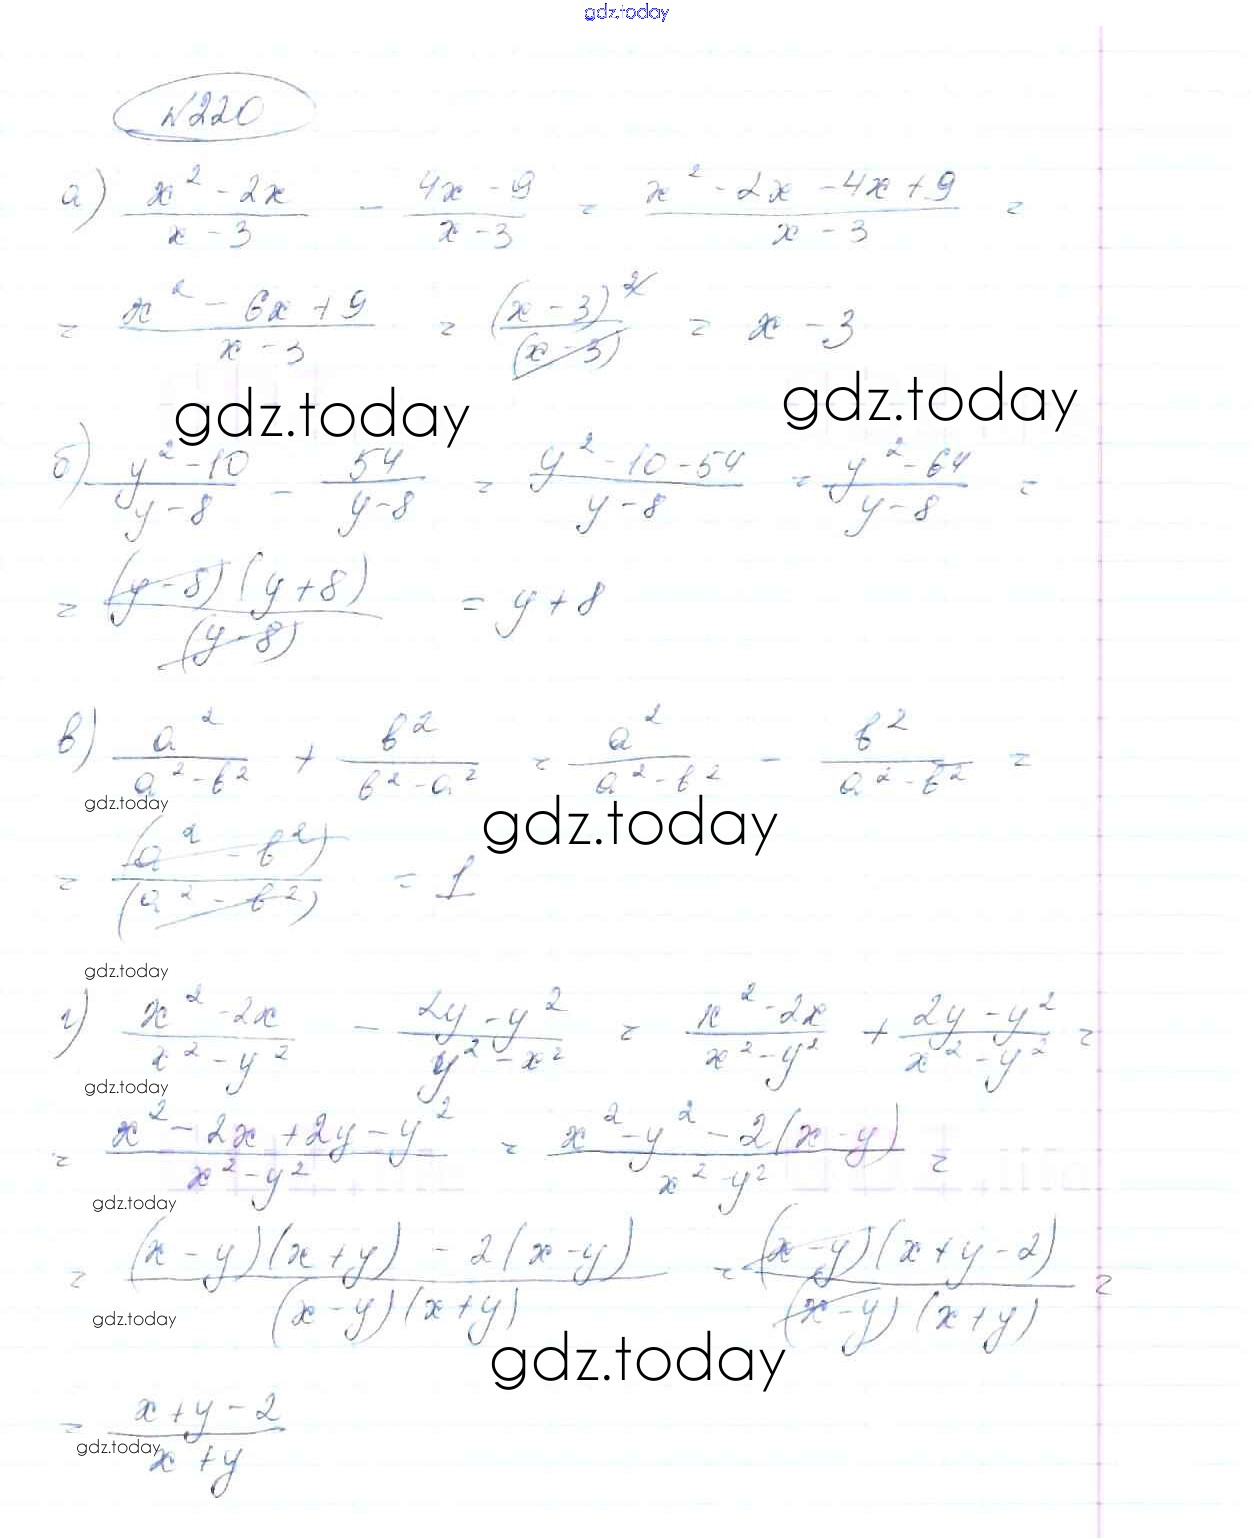 gdz.today
№220
а) (x² - 2x)/(x - 3) - (4x - 9)/(x - 3) = (x² - 2x - 4x + 9)/(x - 3) =
= (x² - 6x + 9)/(x - 3) = (x - 3)²/(x - 3) = x - 3
gdz.today gdz.today
б) (y² - 10)/(y - 8) - 54/(y - 8) = (y² - 10 - 54)/(y - 8) = (y² - 64)/(y - 8) =
= (y - 8)(y + 8)/(y - 8) = y + 8
в) a²/(a² - b²) + b²/(b² - a²) = a²/(a² - b²) - b²/(a² - b²) =
gdz.today gdz.today
= (a² - b²)/(a² - b²) = 1
gdz.today
г) (x² - 2x)/(x² - y²) - (2y - y²)/(y² - x²) = (x² - 2x)/(x² - y²) + (2y - y²)/(x² - y²) =
gdz.today
= (x² - 2x + 2y - y²)/(x² - y²) = (x² - y² - 2(x - y))/(x² - y²) =
gdz.today
= ((x - y)(x + y) - 2(x - y))/((x - y)(x + y)) = (x - y)(x + y - 2)/((x - y)(x + y)) =
gdz.today gdz.today
= (x + y - 2)/(x + y)
gdz.today